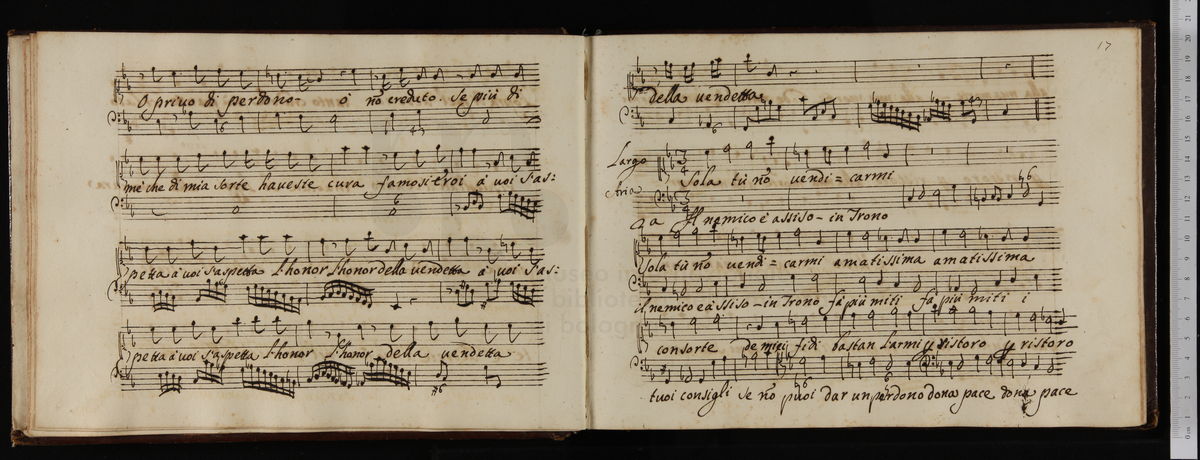 O privo di perdono o nō creduto Se più di
me che di mia sorte haveste cura famosi Eroi à voi s'as:
petta à voi s'aspetta l'honor l'honor della vendetta à voi s'as:
petta à voi s'aspetta l'honor l'honor della vendetta
17
della vendetta
Largo
Aria
Sola tù nō vendi = carmi
2a Il nemico è assiso - in Trono
Sola tù nō vendi = carmi amatissima amatissima
il nemico è assiso - in Trono fà più miti fà più miti i
consorte de miei fidi bastan l'armi ristoro ristoro
tuoi consigli se nō puoi dar un perdono dona pace dona pace